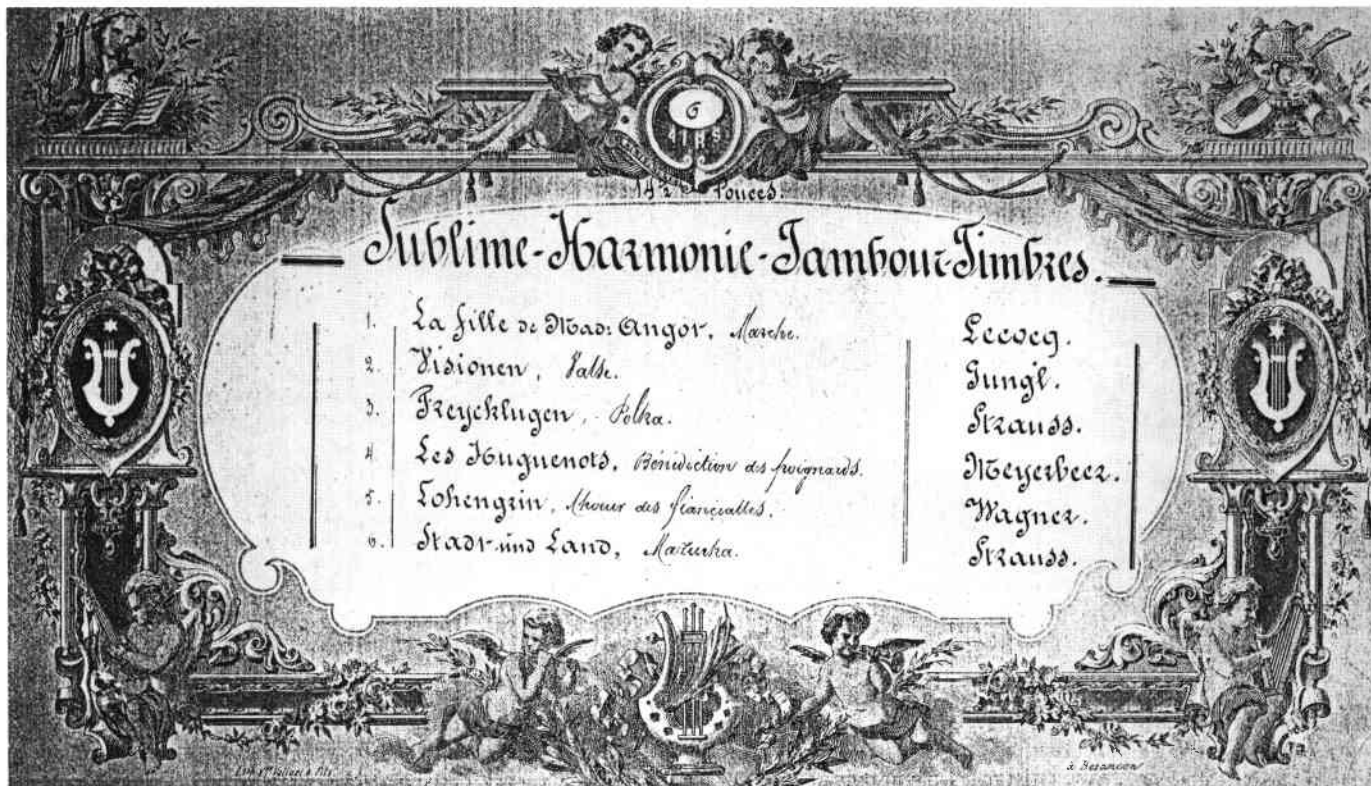 6
AIRS
14½ Pouces.
Sublime-Harmonie-Tambour-Timbres.
1. La fille de Mad: Angot. Marche. Lecocq.
2. Visionen, Valse. Gungl.
3. Freycklugen, Polka. Strauss.
4 Les Huguenots, Bénédiction des poignards. Meyerbeer.
5. Lohengrin, Choeur des fiancialles. Wagner.
6. Stadt und Land, Mazurka. Strauss.
à Besançon